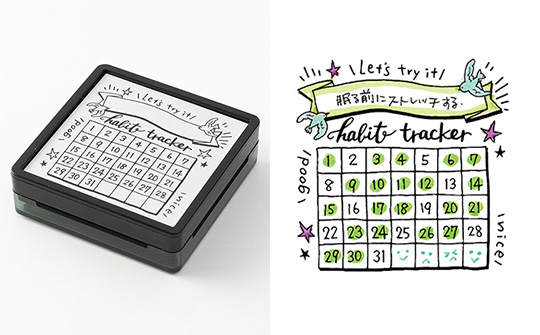 Let's try it!
habit tracker
good!
nice!
1 2 3 4 5 6 7
8 9 10 11 12 13 14
15 16 17 18 19 20 21
22 23 24 25 26 27 28
29 30 31
Let's try it!
眠る前にストレッチする
habit tracker
good!
nice!
1 2 3 4 5 6 7
8 9 10 11 12 13 14
15 16 17 18 19 20 21
22 23 24 25 26 27 28
29 30 31